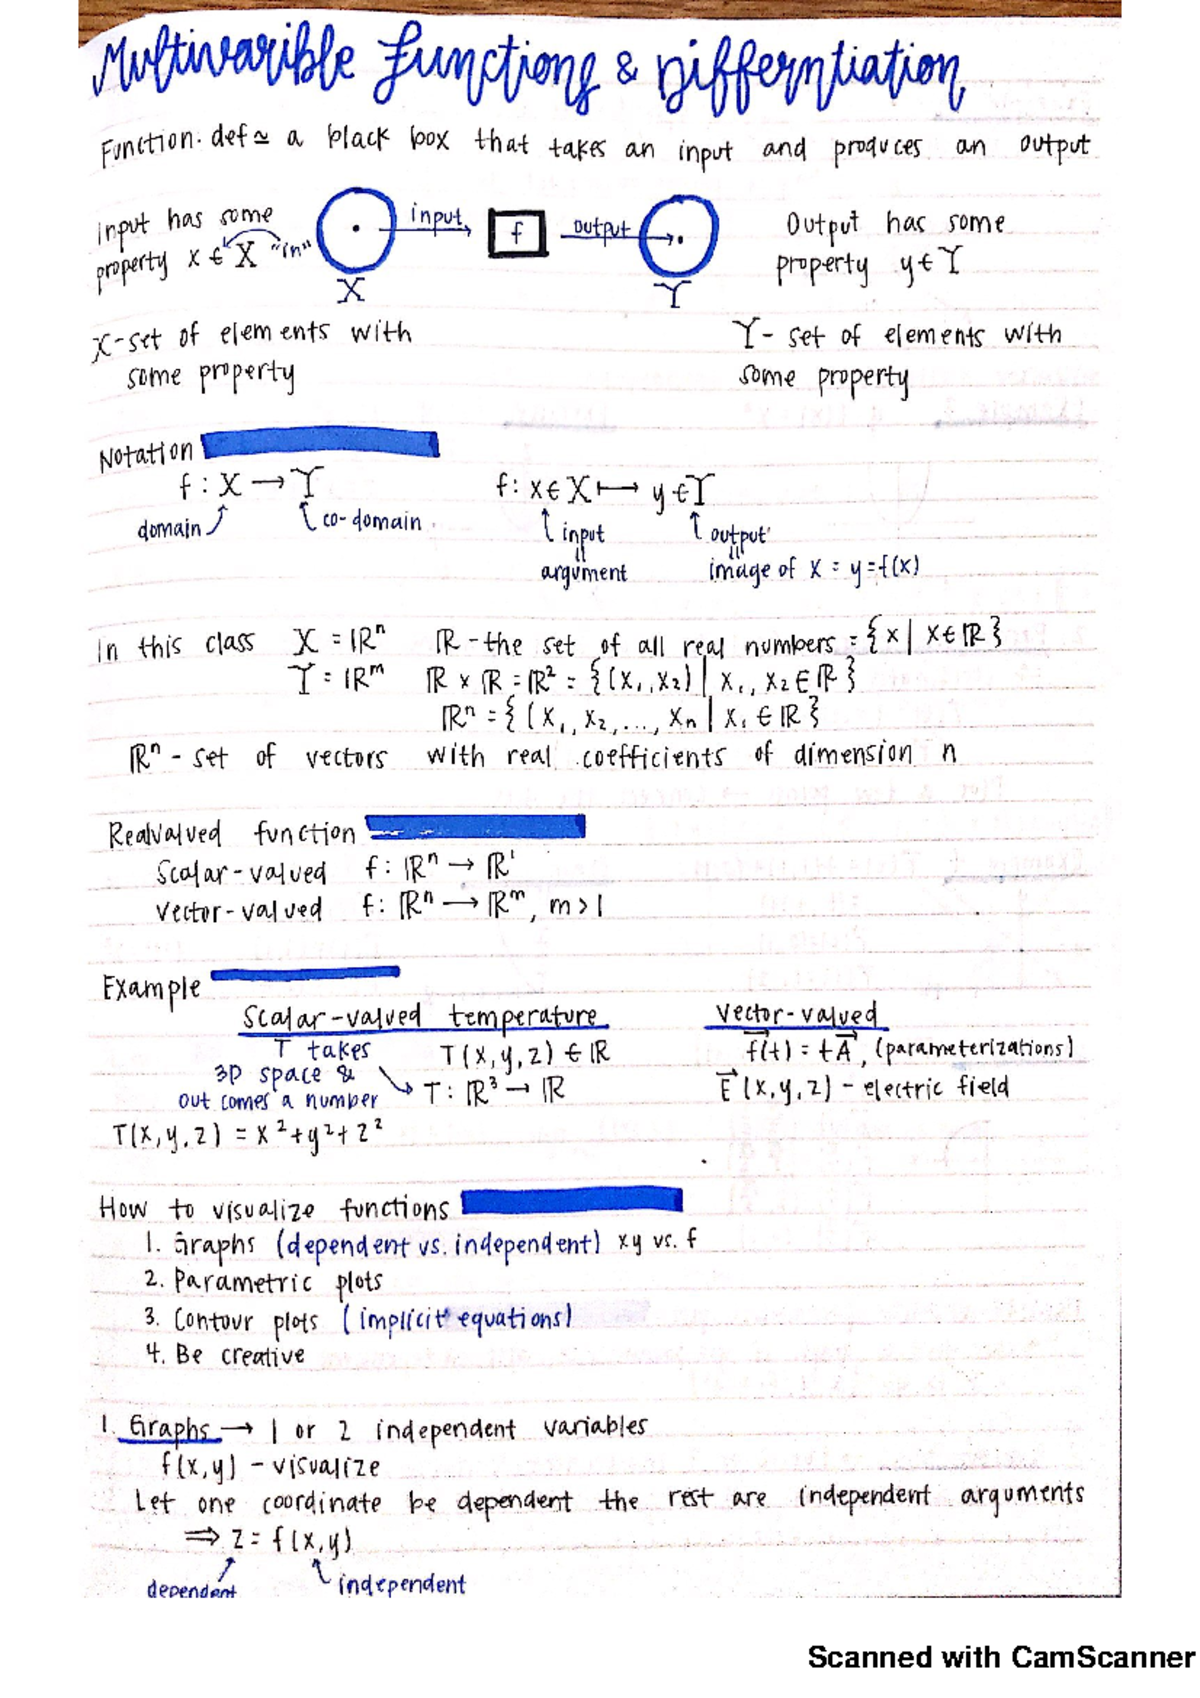 Multivarible Functions & Differntiation
Function: def ≃ a black box that takes an input and produces an output
input has some property x ∈ X "in"
input
f
output
Output has some property y ∈ Y
X
Y
X-set of elements with some property
Y- set of elements with some property
Notation
f : X → Y
f: x ∈ X ⟼ y ∈ Y
domain
co-domain
input
output
=
=
argument
image of x = y = f(x)
In this class X = ℝⁿ ℝ - the set of all real numbers = {x | x ∈ ℝ}
Y = ℝᵐ ℝ × ℝ = ℝ² = {(x₁, x₂) | x₁, x₂ ∈ ℝ}
ℝⁿ = {(x₁, x₂, ..., xₙ | x₁ ∈ ℝ}
ℝⁿ - set of vectors with real coefficients of dimension n
Realvalued function
Scalar-valued f: ℝⁿ → ℝ¹
Vector-valued f: ℝⁿ → ℝᵐ, m > 1
Example
Scalar-valued temperature
Vector-valued
T takes
T(x,y,z) ∈ ℝ
f⃗(t) = tA⃗, (parameterizations)
3D space &
T: ℝ³ → ℝ
E⃗(x,y,z) - electric field
out comes a number
T(x,y,z) = x² + y² + z²
How to visualize functions
1. Graphs (dependent vs. independent) xy vs. f
2. Parametric plots
3. Contour plots (implicit equations)
4. Be creative
1. Graphs → 1 or 2 independent variables
f(x,y) - visualize
Let one coordinate be dependent the rest are independent arguments
⟹ z = f(x,y)
dependent
independent
Scanned with CamScanner